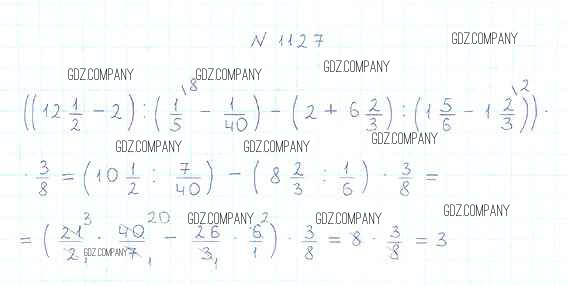 N 1127
GDZ.COMPANY
GDZ.COMPANY GDZ.COMPANY GDZ.COMPANY
((12 1/2 - 2) : (1/5 \8 - 1/40) - (2 + 6 2/3) : (1 5/6 - 1 2/3 \2)) ·
GDZ.COMPANY GDZ.COMPANY GDZ.COMPANY
· 3/8 = (10 1/2 : 7/40) - (8 2/3 : 1/6) · 3/8 =
GDZ.COMPANY GDZ.COMPANY GDZ.COMPANY
= (21 3/2 1 · 40 20/7 1 - 26/3 1 · 6 2/1) · 3/8 = 8 · 3/8 = 3
GDZ.COMPANY